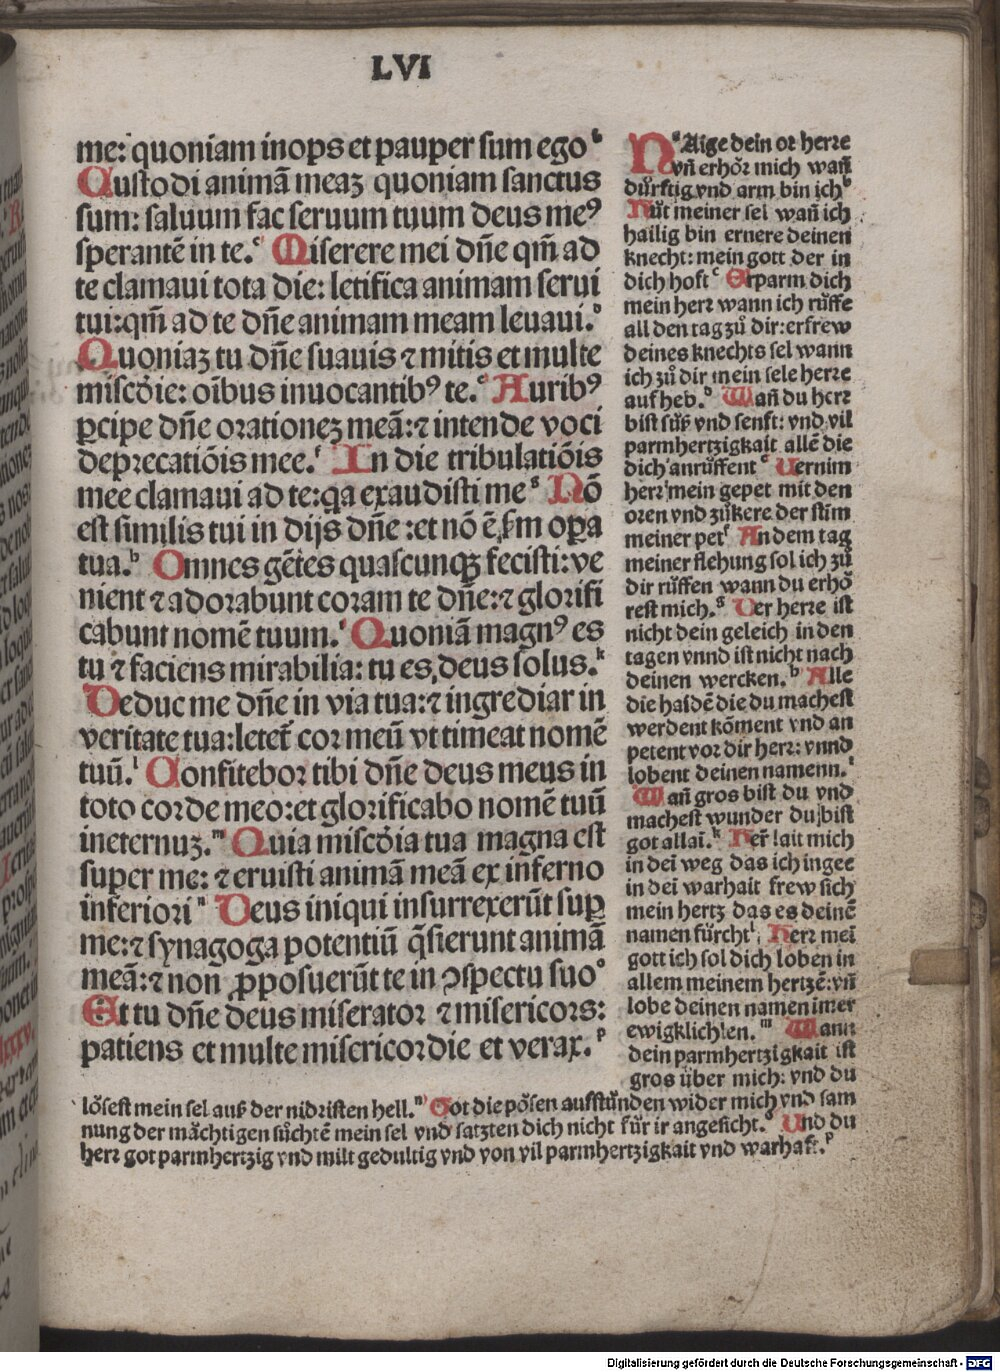 LVI
me: quoniam inops et pauper sum ego b
Custodi animā meaʒ quoniam sanctus
sum: saluum fac seruum tuum deus meꝰ
sperantē in te. c Miserere mei dn̄e qm̄ ad
te clamaui tota die: letifica animam serui
tui: qm̄ ad te dn̄e animam meam leuaui. d
Quoniaʒ tu dn̄e suauis ⁊ mitis et multe
miscōie: oībus inuocantibꝰ te. e Auribꝰ
ꝑcipe dn̄e orationeʒ meā: ⁊ intende voci
deprecatiōis mee. f In die tribulatiōis
mee clamaui ad te: qa exaudisti me g Nō
est similis tui in dijs dn̄e: et nō ē sm opa
tua. h Omnes gētes quascunqꝫ fecisti: ve
nient ⁊ adorabunt coram te dn̄e: ⁊ glorifi
cabunt nomē tuum. i Quoniā magnꝰ es
tu ⁊ faciens mirabilia: tu es deus solus. k
Deduc me dn̄e in via tua: ⁊ ingrediar in
veritate tua: letet̄ cor meū vt timeat nomē
tuū. l Confitebor tibi dn̄e deus meus in
toto corde meo: et glorificabo nomē tuū
ineternuʒ. m Quia miscōia tua magna est
super me: ⁊ eruisti animā meā ex inferno
inferiori n Deus iniqui insurrexerūt suꝑ
me: ⁊ synagoga potentiū q̄sierunt animā
meā: ⁊ non ꝓposuerūt te in ꝯspectu suo o
Et tu dn̄e deus miserator ⁊ misericors:
patiens et multe misericordie et verax. p
N a Aige dein or herre
vn̄ erhör mich wan̄
dürftig vnd arm bin ich b
Hüt meiner sel wan̄ ich
hailig bin ernere deinen
knecht: mein gott der in
dich hoft c Erparm dich
mein herr wann ich rüffe
all den tag zů dir: erfrew
deines knechts sel wann
ich zů dir mein sele herre
auf heb. d Wan̄ du herr
bist süß vnd senft: vnd vil
parmhertzigkait allē die
dich anrüffent e Uernim
herr mein gepet mit den
oren vnd zůkere der stim
meiner pet f An dem tag
meiner flehung sol ich zů
dir rüffen wann du erhö
rest mich. g Der herre ist
nicht dein geleich in den
tagen vnnd ist nicht nach
deinen wercken. h Alle
die haidē die du machest
werdent kōment vnd an
petent vor dir herr: vnnd
lobent deinen namenn. i
Wan̄ gros bist du vnd
machest wunder du bist
got allaī. k Her̄ lait mich
in dei weg das ich ingee
in dei warhait frew sich
mein hertz das es deinē
namen fürcht l Herr mei
gott ich sol dich loben in
allem meinem hertzē: vn̄
lobe deinen namen imer
ewigklichen. m Wann
dein parmhertzigkait ist
gros über mich: vnd du
lösest mein sel auß der nidristen hell. n Got die pösen aufstůnden wider mich vnd sam
nung der mächtigen sůchtē mein sel vnd satzten dich nicht für ir angesicht. o Und du
herr got parmhertzig vnd milt gedultig vnd von vil parmhertzigkait vnd warhaft. p
Digitalisierung gefördert durch die Deutsche Forschungsgemeinschaft - DFG